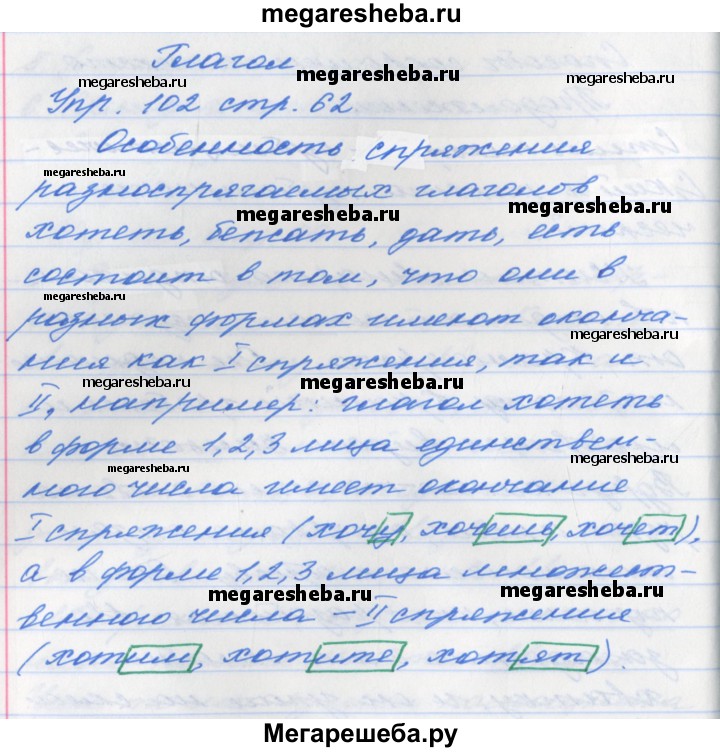 megaresheba.ru
Глагол
megaresheba.ru megaresheba.ru megaresheba.ru
Упр. 102 стр. 62
Особенность спряжения
megaresheba.ru
разноспрягаемых глаголов
megaresheba.ru megaresheba.ru
хотеть, бежать, дать, есть
состоит в том, что они в
megaresheba.ru
разных формах имеют оконча-
megaresheba.ru
ния как I спряжения, так и
megaresheba.ru megaresheba.ru
II, например: глагол хотеть
в форме 1, 2, 3 лица единствен-
megaresheba.ru megaresheba.ru
ного числа имеет окончание
I спряжения (хочу, хочешь, хочет),
а в форме 1, 2, 3 лица множест-
megaresheba.ru megaresheba.ru
венного числа – II спряжения
(хотим, хотите, хотят).
Мегарешеба.ру